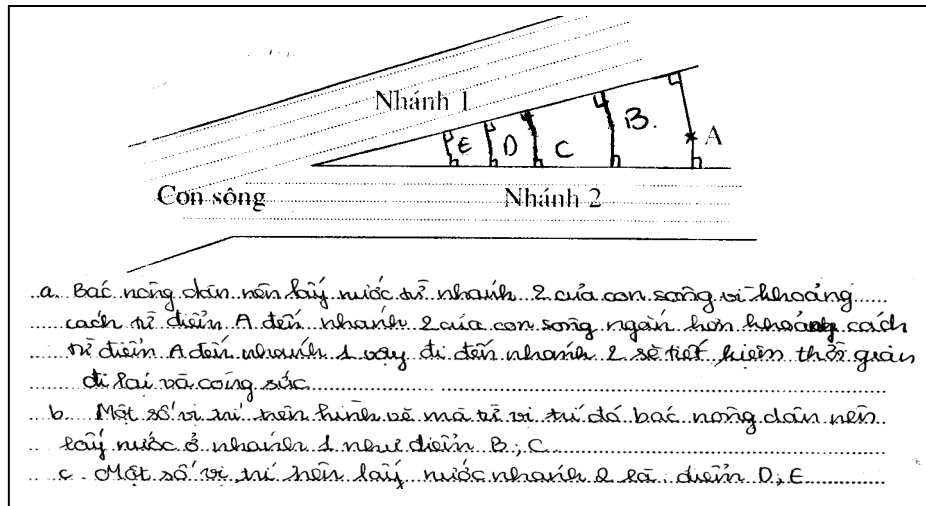 Nhánh 1
B.
A
E D C
Con sông
Nhánh 2
a. Bác nông dân nên lấy nước từ nhánh 2 của con sông vì khoảng
cách từ điểm A đến nhánh 2 của con sông ngắn hơn khoảng cách
từ điểm A đến nhánh 1 vậy đi đến nhánh 2 sẽ tiết kiệm thời gian
đi lại và công sức
b. Một số vị trí trên hình vẽ mà từ vị trí đó bác nông dân nên
lấy nước ở nhánh 1 như điểm B; C
c. Một số vị trí nên lấy nước nhánh 2 là: điểm D; E